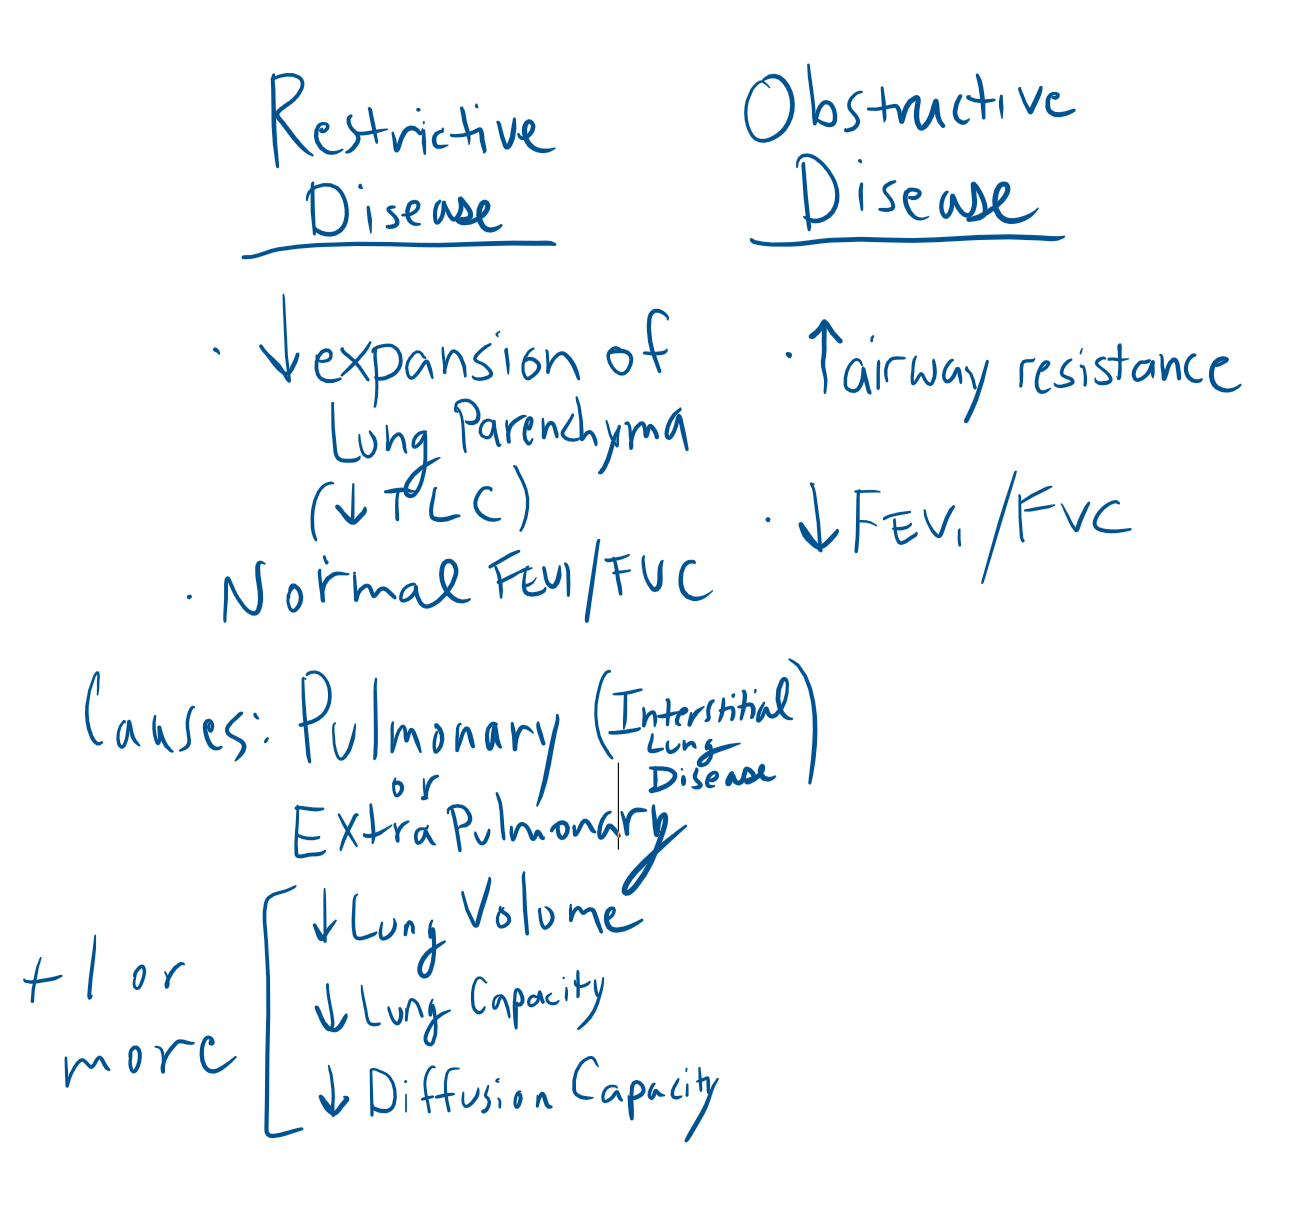 Restrictive
Disease
· ↓ expansion of
Lung Parenchyma
(↓ TLC)
· Normal FEV1/FVC
Obstructive
Disease
· ↑ airway resistance
· ↓ FEV₁/FVC
Causes: Pulmonary (Interstitial
Lung
Disease)
or
ExtraPulmonary
+ 1 or
more
↓ Lung Volume
↓ Lung Capacity
↓ Diffusion Capacity